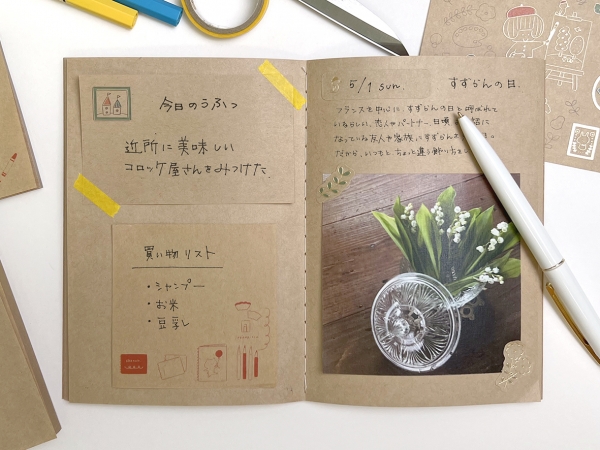 今日のうふっ
近所に美味しい
コロッケ屋さんをみつけた。
買い物リスト
・シャンプー
・お米
・豆乳
5/1 sun.
すずらんの日.
フランスを中心に、すずらんの日と呼ばれて
いるらしい。恋人やパートナー、日頃
なっている友人や家族にすずらんを
だから、いつもと、ちょっと違う飾り方を